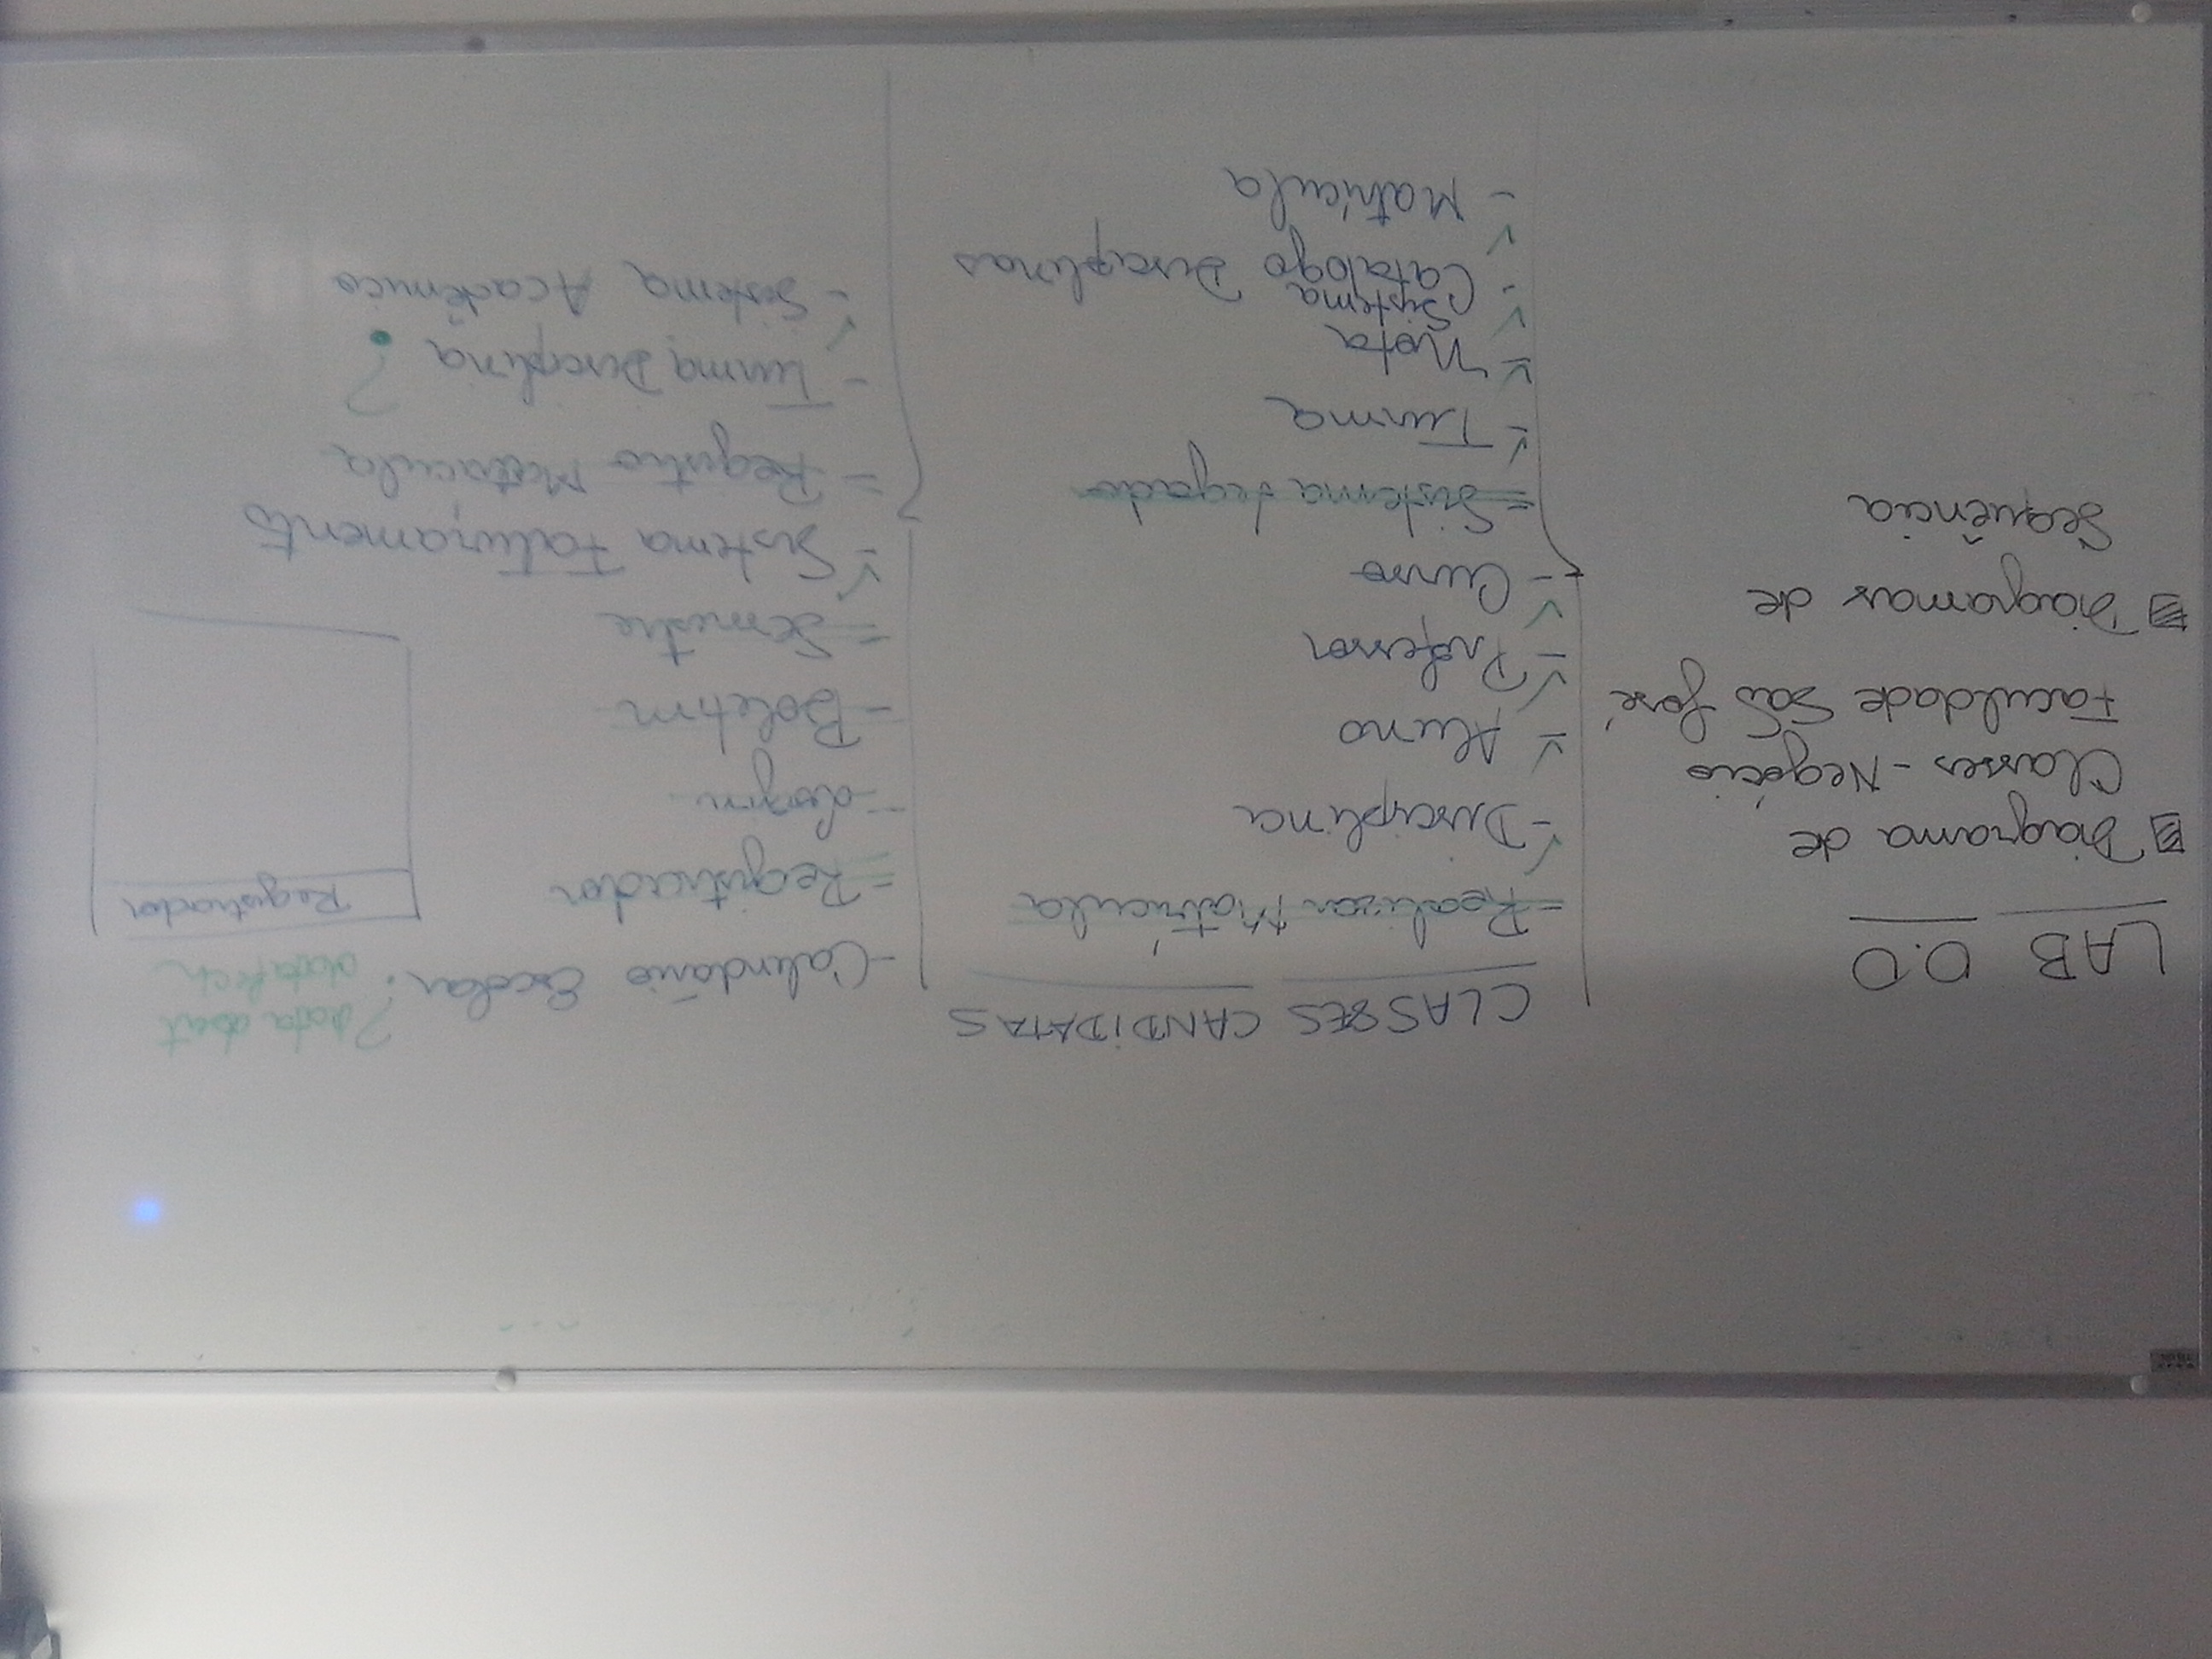 LAB O.O
Diagrama de
Classes - Negócio
Faculdade São José
Diagramas de
Sequência
CLASSES CANDIDATAS
- Realizar Matrícula
✓ - Disciplina
✓ - Aluno
✓ - Professor
✓ - Curso
- Sistema Legado
✓ - Turma
✓ - Nota
Sistema
✓ - Catálogo Disciplinas
✓ - Matrícula
- Calendário Escolar ? data abert
data fech
- Registrador
- Login
- Boletim
- Semestre
✓ - Sistema Faturamento
- Registro Matrícula
- Turma Disciplina ?
✓ - Sistema Acadêmico
Registrador